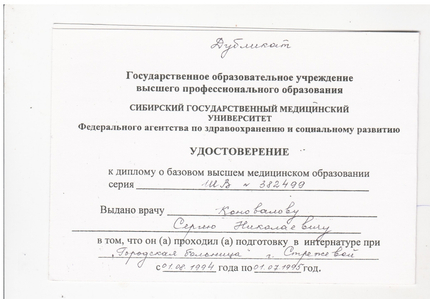 Дубликат
Государственное образовательное учреждение
высшего профессионального образования
СИБИРСКИЙ ГОСУДАРСТВЕННЫЙ МЕДИЦИНСКИЙ
УНИВЕРСИТЕТ
Федерального агентства по здравоохранению и социальному развитию
УДОСТОВЕРЕНИЕ
к диплому о базовом высшем медицинском образовании
серия ШВ № 382499
Выдано врачу Коновалову
Сергею Николаевичу
в том, что он (а) проходил (а) подготовку в интернатуре при
"Городская больница" г. Стрежевой
с 01.08 1994 года по 01.07 1995 год.